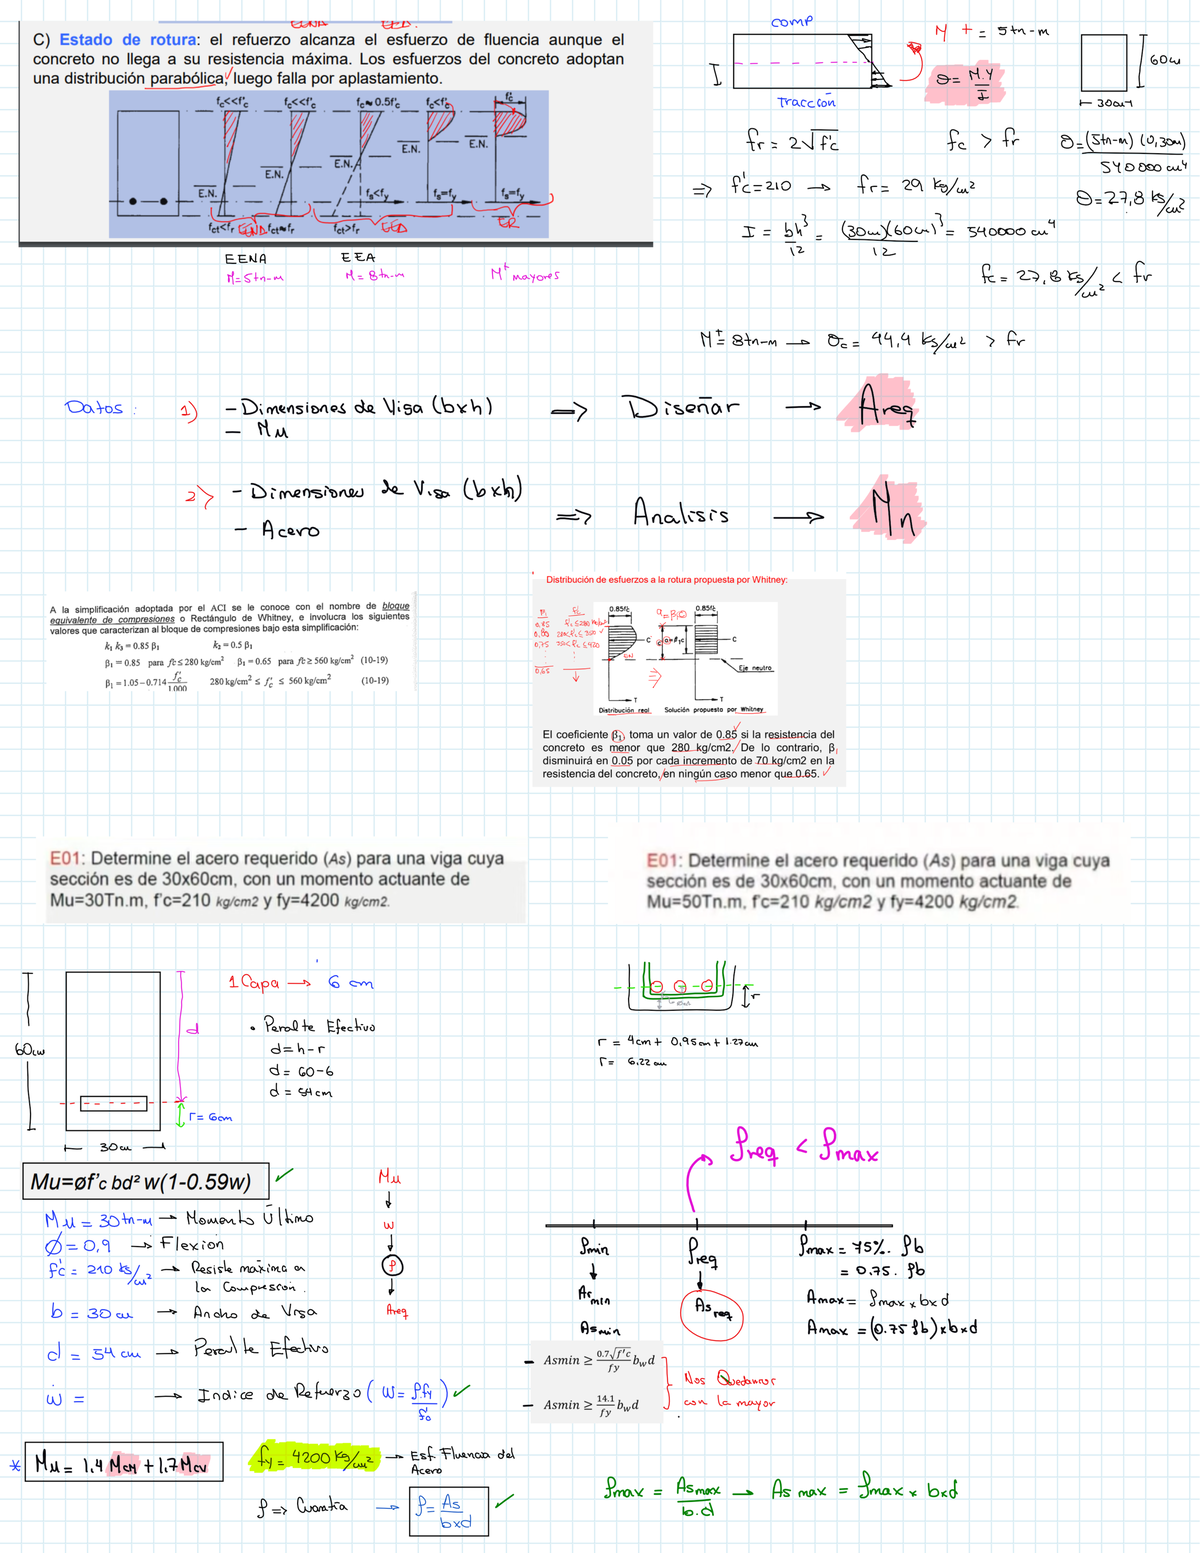 EENA EEA.
C) Estado de rotura: el refuerzo alcanza el esfuerzo de fluencia aunque el
concreto no llega a su resistencia máxima. Los esfuerzos del concreto adoptan
una distribución parabólica, luego falla por aplastamiento.
fc<<f'c fc<<f'c fc≈0.5f'c fc<f'c f'c
E.N. E.N. E.N. E.N. E.N.
fs<fy fs=fy fs=fy
fct<fr EENA fct≈fr fct>fr EEA ER
EENA EEA
M=5tn-m M=8tn-m M+ mayores
COMP
I
Tracción
M + = 5tn-m
σ = M.Y / I
60cm
30cm
fr = 2√f'c fc > fr
σ = (5tn-m) (0,30m) / 540000 cm4
=> f'c=210 → fr = 29 kg/cm²
σ = 27,8 kg/cm²
I = bh³/12 = (30cm)(60cm)³/12 = 540000 cm4
fc = 27,8 kg/cm² < fr
M+ = 8tn-m → σc = 44,4 kg/cm² > fr
Datos :
1) - Dimensiones de Viga (bxh) => Diseñar → Areq
- Mu
2) - Dimensiones de Viga (bxh)
- Acero => Analisis → Mn
A la simplificación adoptada por el ACI se le conoce con el nombre de bloque
equivalente de compresiones o Rectángulo de Whitney, e involucra los siguientes
valores que caracterizan al bloque de compresiones bajo esta simplificación:
k₁ k₃ = 0.85 β₁ k₂ = 0.5 β₁
β₁ = 0.85 para f'c ≤ 280 kg/cm² β₁ = 0.65 para f'c ≥ 560 kg/cm² (10-19)
β₁ = 1.05 – 0.714 f'c/1000 280 kg/cm² ≤ f'c ≤ 560 kg/cm² (10-19)
Distribución de esfuerzos a la rotura propuesta por Whitney:
β₁ f'c
0.85 f'c ≤ 280 kg/cm²
0,80 280<f'c ≤ 350
0,75 350<f'c ≤ 420
0,65
0.85f'c a=β₁c 0.85f'c
C a=β₁c C
EN
Eje neutro
T T
Distribución real Solución propuesta por Whitney
El coeficiente β₁ toma un valor de 0.85 si la resistencia del
concreto es menor que 280 kg/cm2. De lo contrario, β₁
disminuirá en 0.05 por cada incremento de 70 kg/cm2 en la
resistencia del concreto, en ningún caso menor que 0.65.
E01: Determine el acero requerido (As) para una viga cuya
sección es de 30x60cm, con un momento actuante de
Mu=30Tn.m, f'c=210 kg/cm2 y fy=4200 kg/cm2.
E01: Determine el acero requerido (As) para una viga cuya
sección es de 30x60cm, con un momento actuante de
Mu=50Tn.m, f'c=210 kg/cm2 y fy=4200 kg/cm2.
1 Capa → 6 cm
• Peralte Efectivo
d = h-r
d = 60-6
d = 54cm
60cm
d
r = 6cm
30cm
r
r = 4cm + 0,95cm + 1.27cm
r = 6.22 cm
Mu=øf'c bd² w(1-0.59w)
Mu = 30tn-m → Momento Último
Ø = 0,9 → Flexion
f'c = 210 kg/cm² → Resiste maxima a
la Compresion.
b = 30 cm → Ancho de Viga
d = 54 cm → Peralte Efectivo
w = → Indice de Refuerzo (w = ρ.fy / f'c)
Mu
w
ρ
Areq
* Mu = 1,4 Mcm + 1,7 Mcv
fy = 4200 kg/cm² → Esf. Fluencia del
Acero
ρ => Cuantia → ρ = As / bxd
ρreq < ρmax
ρmin ρreq ρmax = 75%. ρb
= 0.75. ρb
As min As req
Asmin
Amax = ρmax x bxd
Amax = (0.75 ρb) x bxd
- Asmin ≥ 0.7√f'c / fy bwd
- Asmin ≥ 14.1 / fy bwd
Nos Quedamos
con la mayor
ρmax = Asmax / b.d → As max = ρmax x bxd